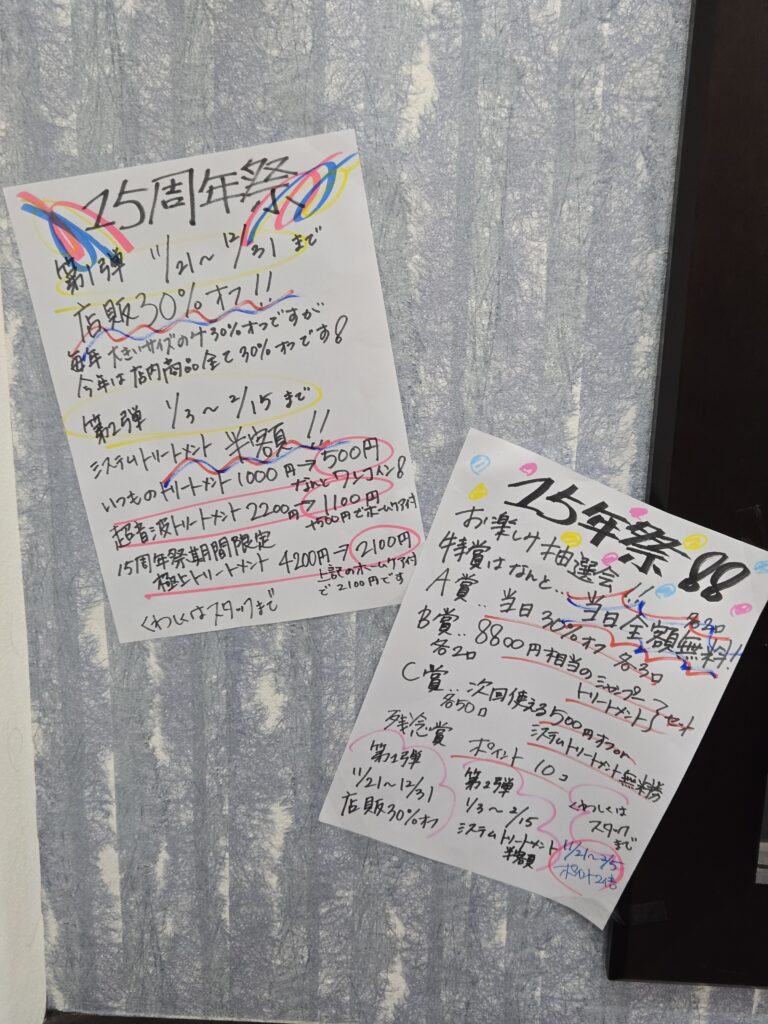 15周年祭
第1弾 11/21〜12/31 まで
店販30%オフ!!
毎年 大きいサイズのみ30%オフですが
今年は店内商品全て30%オフです!!
第2弾 1/3〜2/15 まで
システムトリートメント 半額!!
いつものトリートメント 1000円→500円
なんとワンコイン!!
超音波トリートメント 2200円→1100円
+500円でホームケア付
15周年祭期間限定
極上トリートメント 4200円→2100円
上記のホームケア付
で2100円です
くわしくはスタッフまで
15年祭!!
お楽しみ抽選会!!
特賞はなんと… 当日全額無料! 各3口
A賞‥当日30%オフ 各3口
B賞‥8800円相当のシャンプー
各2口 トリートメント セット
C賞‥次回使える500円オフor
各50口 システムトリートメント無料券
残念賞 ポイント10コ
第1弾
11/21〜12/31
店販30%オフ
第2弾
1/3〜2/15
システムトリートメント
半額
くわしくは
スタッフ
まで
11/21〜2/5
ポイント2倍